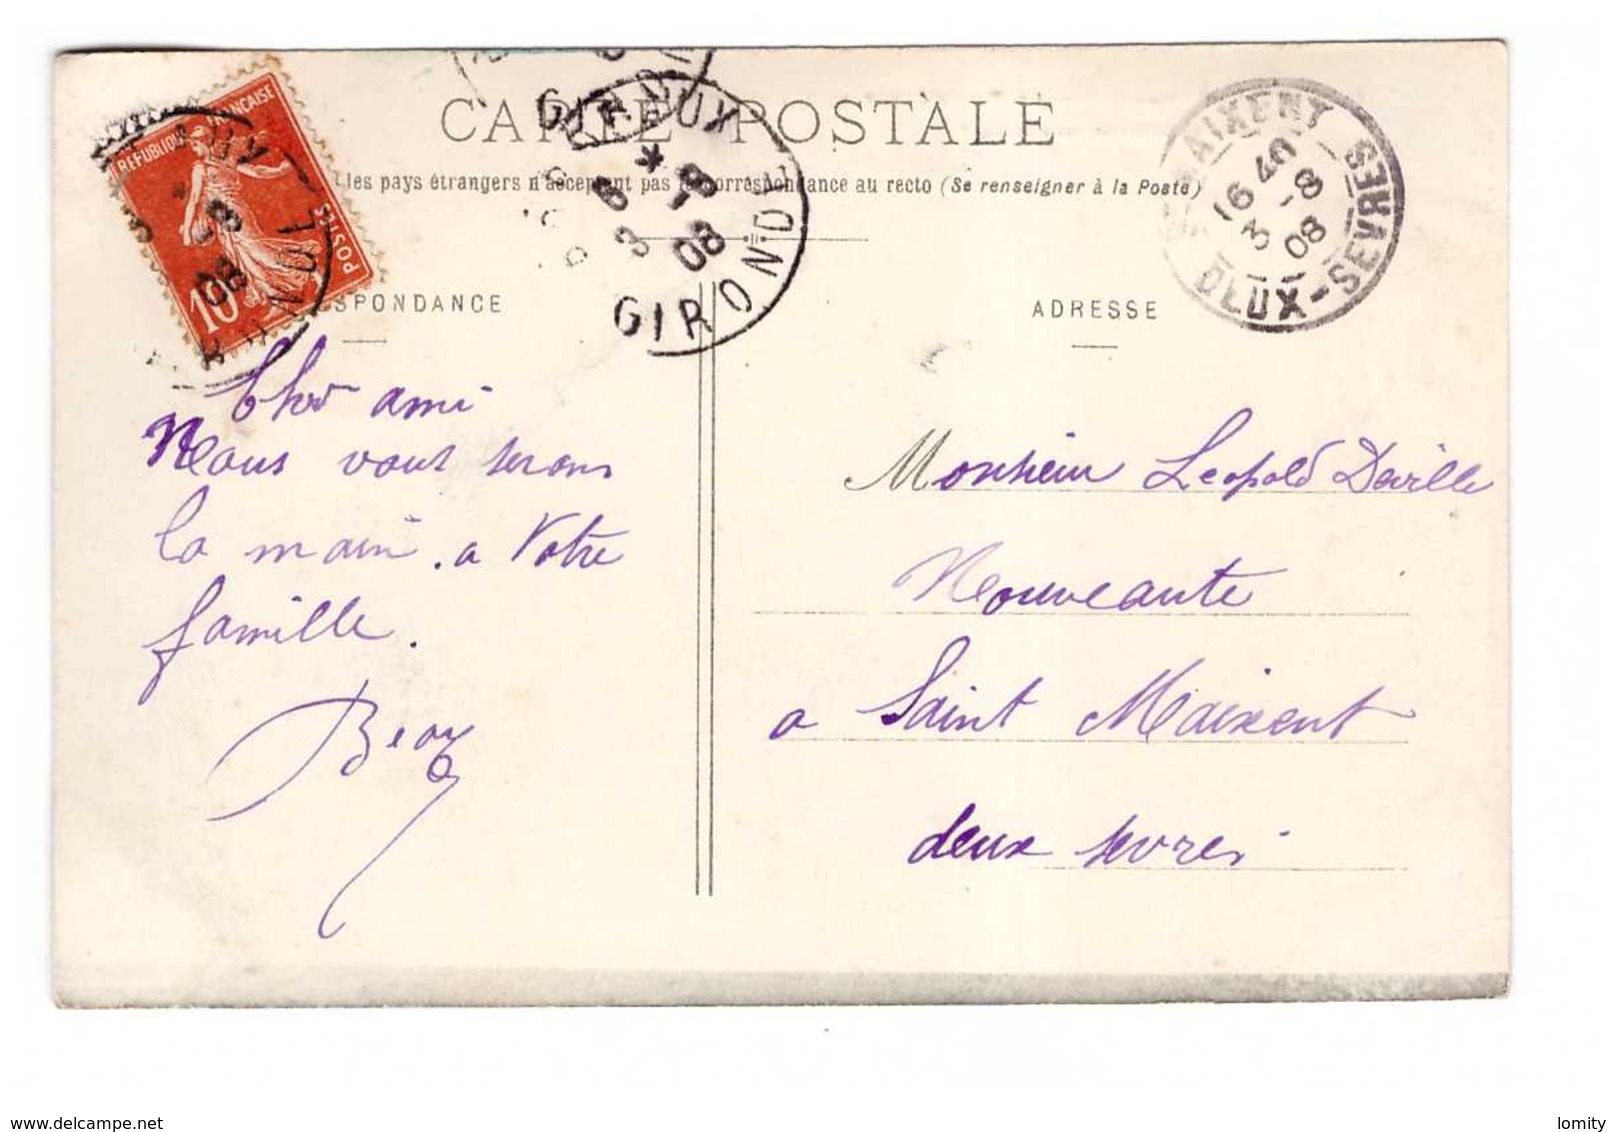 CARTE POSTALE
les pays étrangers n'acceptent pas la correspondance au recto (Se renseigner à la Poste)
REPUBLIQUE FRANÇAISE
POSTES
10
3 -8
08
8 * 8
3 08
GIRONDE
MAIXENT
16 40
3 -8
08
DEUX-SEVRES
SPONDANCE
ADRESSE
Cher ami
Nous vous serons
la main. a Votre
famille.
Monsieur Leopold Deville
Nouveaute
a Saint Maixent
deux sevres
www.delcampe.net
lomity